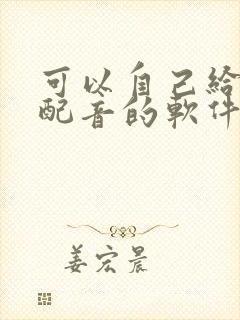 可以自己给
配音的軟件
姜宏晨